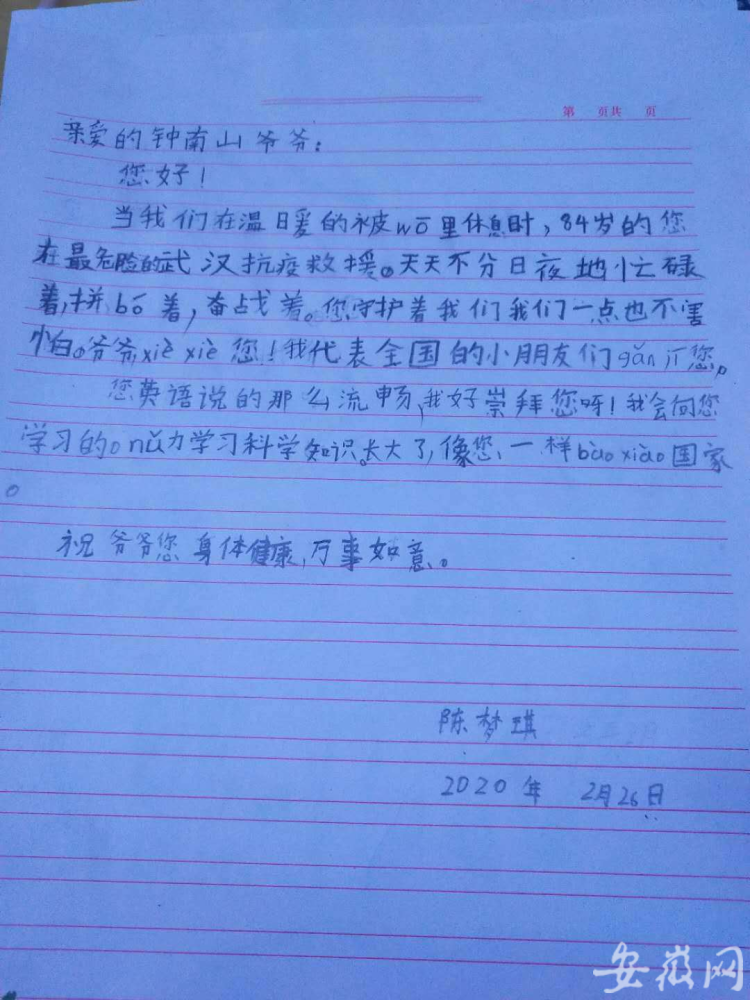 第 页共 页
亲爱的钟南山爷爷：
您好！
当我们在温暖的被wō里休息时，84岁的您
在最危险的武汉抗疫救援。天天不分日夜地忙碌
着，拼bō着，奋战着。您守护着我们我们一点也不害
怕。爷爷，xiè xiè您！我代表全国的小朋友们gǎn jī您。
您英语说的那么流畅，我好崇拜您呀！我会向您
学习的。nǔ力学习科学知识。长大了，像您一样bào xiào国家
。
祝爷爷您身体健康，万事如意。
陈梦琪
2020年 2月26日
安徽网